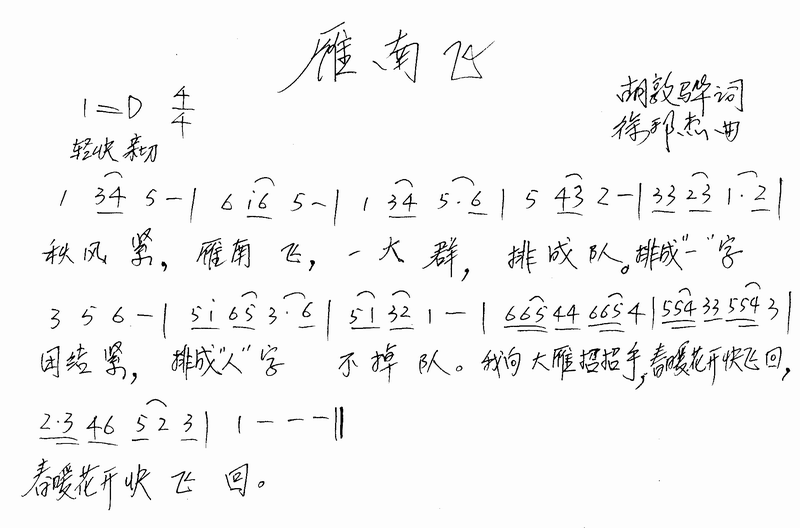 雁南飞
1=D 4/4
胡敦骅词
轻快 亲切
徐邦杰曲
1 34 5 - | 6 i6 5 - | 1 34 5·6 | 5 43 2 - | 33 23 1·2 |
秋风紧，雁南飞，一大群，排成队。排成"一"字
3 5 6 - | 5i 65 3·6 | 51 32 1 - | 665 44 665 4 | 554 33 554 3 |
团结紧，排成"人"字 不掉队。我向大雁招招手，春暖花开快飞回，
2·3 46 5 2 3 | 1 - - - ||
春暖花开快飞回。